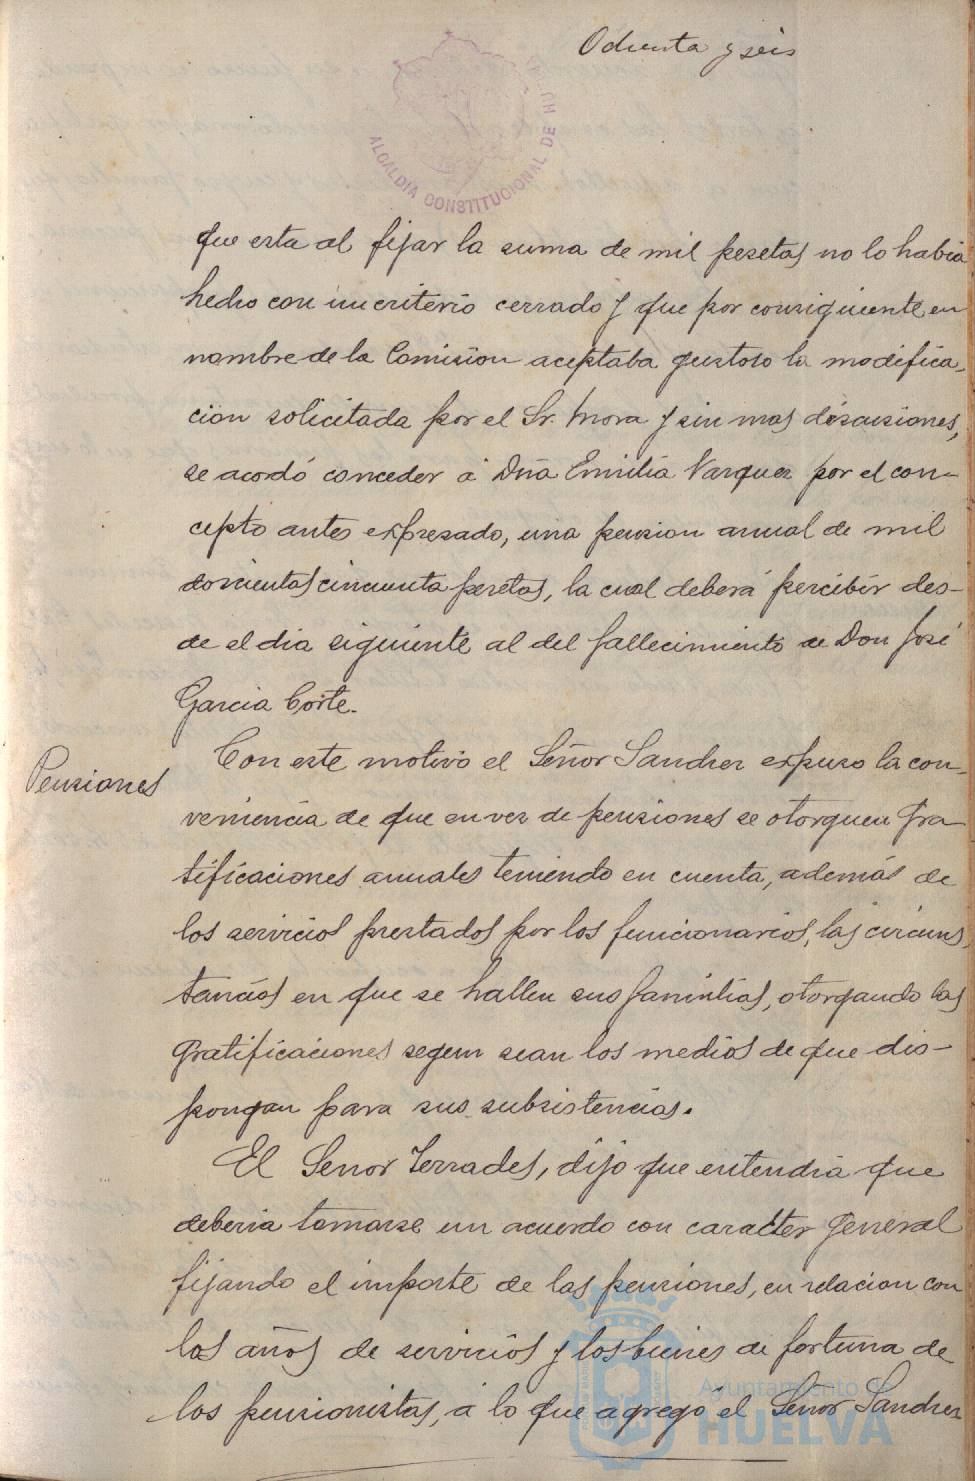 Ochenta y seis
ALCALDIA CONSTITUCIONAL DE HU
que esta al fijar la suma de mil pesetas no lo habia
hecho con un criterio cerrado y que por consiguiente en
nombre de la Comisión aceptaba gustoso la modifica-
cion solicitada por el Sr. Mora y sin mas discusiones,
se acordó conceder á Dña Emilia Vazquez por el con-
cepto antes expresado, una pension anual de mil
doscientas cincuenta pesetas, la cual deberá percibir des-
de el dia siguiente al del fallecimiento de Don José
Garcia Corte.
Pensiones
Con este motivo el Señor Sanchez expuso la con-
veniencia de que en vez de pensiones se otorguen gra-
tificaciones anuales teniendo en cuenta, además de
los servicios prestados por los funcionarios, las circuns-
tancias en que se hallen sus familias, otorgando las
gratificaciones segun sean los medios de que dis-
pongan para sus subsistencias.
El Señor Terrades, dijo que entendia que
deberia tomarse un acuerdo con caracter general
fijando el importe de las pensiones, en relacion con
los años de servicios y los bienes de fortuna de
los pensionistas, á lo que agregó el Señor Sanchez
Ayuntamiento de
HUELVA